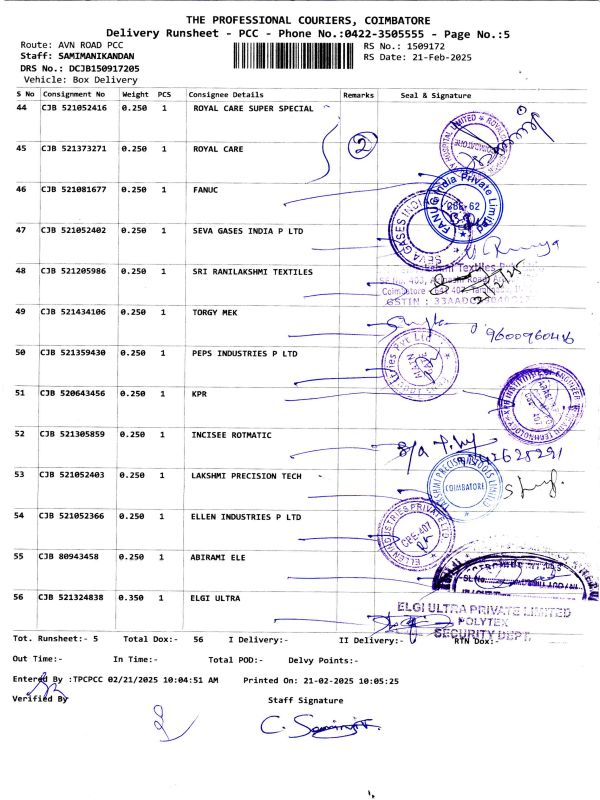 THE PROFESSIONAL COURIERS, COIMBATORE
Delivery Runsheet - PCC - Phone No.:0422-3505555 - Page No.:5
Route: AVN ROAD PCC RS No.: 1509172
Staff: SAMIMANIKANDAN RS Date: 21-Feb-2025
DRS No.: DCJB150917205
Vehicle: Box Delivery
S No Consignment No Weight PCS Consignee Details Remarks Seal & Signature
44 CJB 521052416 0.250 1 ROYAL CARE SUPER SPECIAL
45 CJB 521373271 0.250 1 ROYAL CARE 2
46 CJB 521081677 0.250 1 FANUC
FANUC India Private Limited
CBE-62
47 CJB 521052402 0.250 1 SEVA GASES INDIA P LTD
SEVA GASES INDIA
48 CJB 521205986 0.250 1 SRI RANILAKSHMI TEXTILES
49 CJB 521434106 0.250 1 TORGY MEK
50 CJB 521359430 0.250 1 PEPS INDUSTRIES P LTD
51 CJB 520643456 0.250 1 KPR
52 CJB 521305859 0.250 1 INCISEE ROTMATIC
53 CJB 521052403 0.250 1 LAKSHMI PRECISION TECH
COIMBATORE
54 CJB 521052366 0.250 1 ELLEN INDUSTRIES P LTD
ELLEN INDUSTRIES PRIVATE LTD
CBE-407
55 CJB 80943458 0.250 1 ABIRAMI ELE
56 CJB 521324838 0.350 1 ELGI ULTRA
ELGI ULTRA PRIVATE LIMITED
POLYTEX
SECURITY DEPT.
Tot. Runsheet:- 5 Total Dox:- 56 I Delivery:- II Delivery:- RTN Dox:-
Out Time:- In Time:- Total POD:- Delvy Points:-
Entered By :TPCPCC 02/21/2025 10:04:51 AM Printed On: 21-02-2025 10:05:25
Verified By Staff Signature